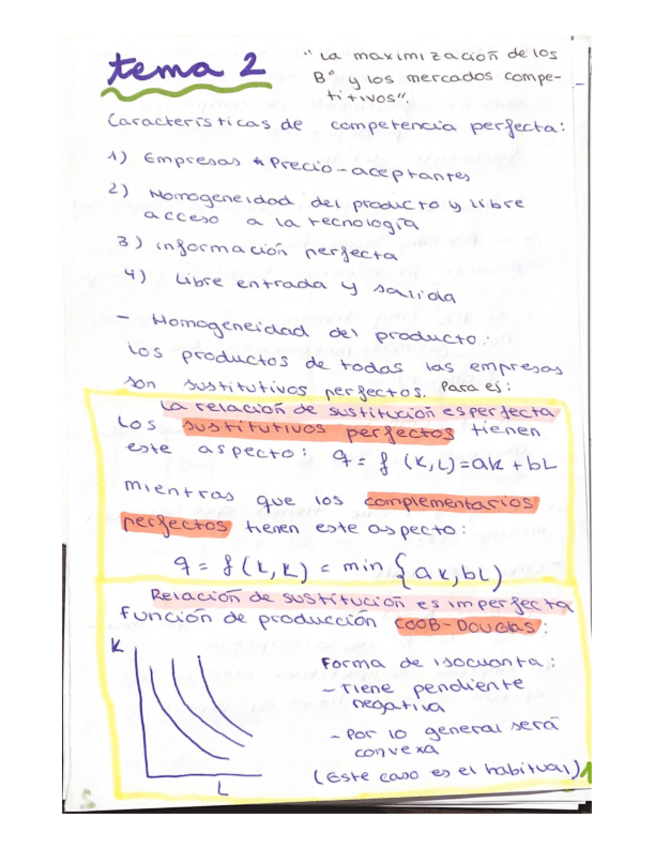 tema 2
"La maximización de los
Bº y los mercados compe-
titivos".
Características de competencia perfecta:
1) Empresas * Precio-aceptantes
2) Homogeneidad del producto y libre
acceso a la tecnología
3) información perfecta
4) Libre entrada y salida
- Homogeneidad del producto:
los productos de todas las empresas
son sustitutivos perfectos. Para es:
La relación de sustitución es perfecta
Los sustitutivos perfectos tienen
este aspecto: q = f (K,L)=aK+bL
mientras que los complementarios
perfectos tienen este aspecto:
q = f(k,k) = min {ak,bL)
Relación de sustitución es imperfecta
función de producción COOB-DOUGlas:
K
L
Forma de isocuanta:
- Tiene pendiente
negativa
- Por lo general será
convexa
(Este caso es el habitual)
1